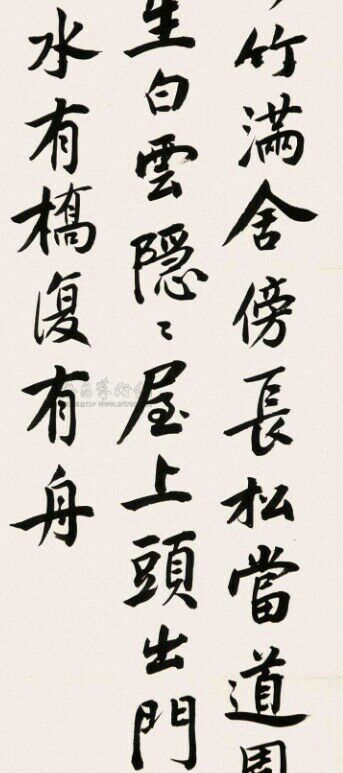 竹滿舍傍長松當道周
生白雲隱〻屋上頭出門
水有橋復有舟